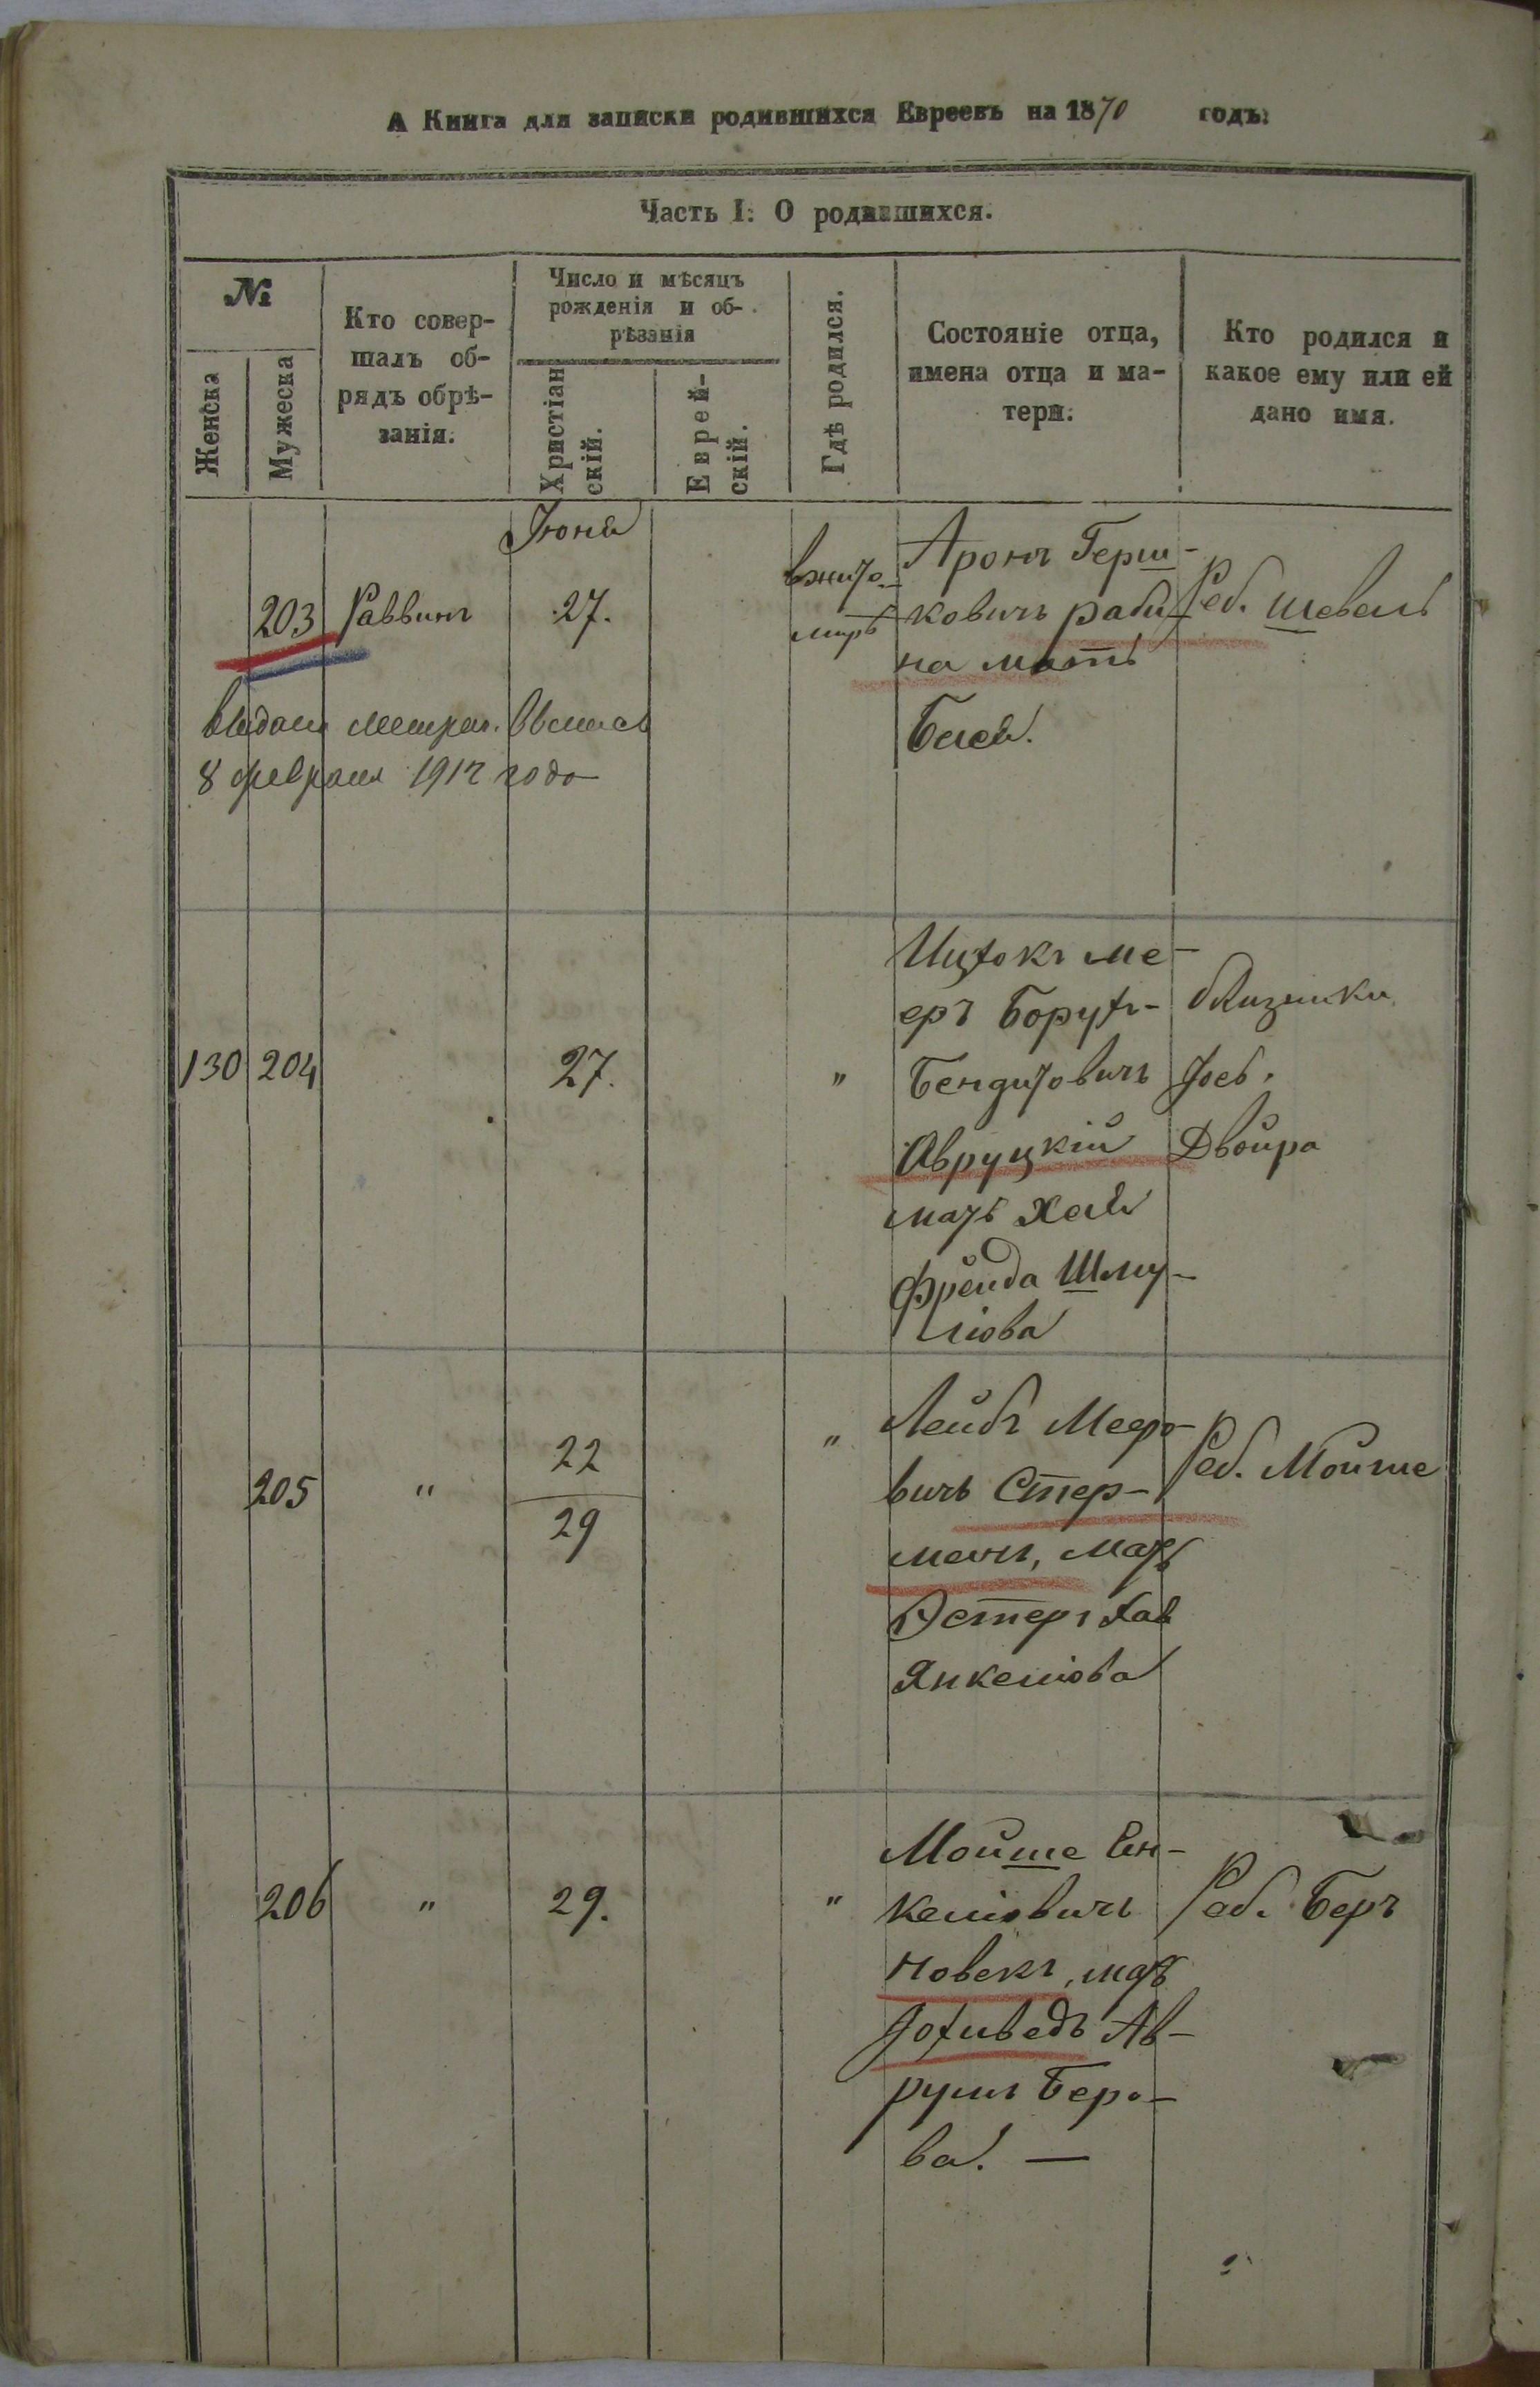 А Книга для записки родившихся Евреевъ на 1870 годъ:
Часть I: О родившихся.
№
Женска
Мужеска
Кто совер-
шалъ об-
рядъ обрѣ-
занія.
Число и мѣсяцъ
рожденія и об-
рѣзанія
Христіан
скій.
Еврей-
скій.
Гдѣ родился.
Состояніе отца,
имена отца и ма-
тери.
Кто родился и
какое ему или ей
дано имя.
Іюня
203 Раввинъ 27.
вжито-
мирѣ
Аронъ Герш-
ковичъ раби-
на мать
Бася.
Реб. Шевель
выдана метрич.
8 февраля 1912 года
130 204 27. "
Ицхокъ Ме-
еръ Борухъ-
Бендитовичъ
Авруцкій
мать Хая
Фрейда Шму-
ліова
близнки
Іос.
Двойра
205 " 22
29 "
Лейбъ Меро-
вичъ Стер-
манъ, мать
Эстеръ Хая
Янкеліова
Реб. Мойше
206 " 29. "
Мойше Ен-
келіовичъ
Новекъ, мать
Іохиведъ Ав-
румъ Беро-
ва. —
Реб. Беръ